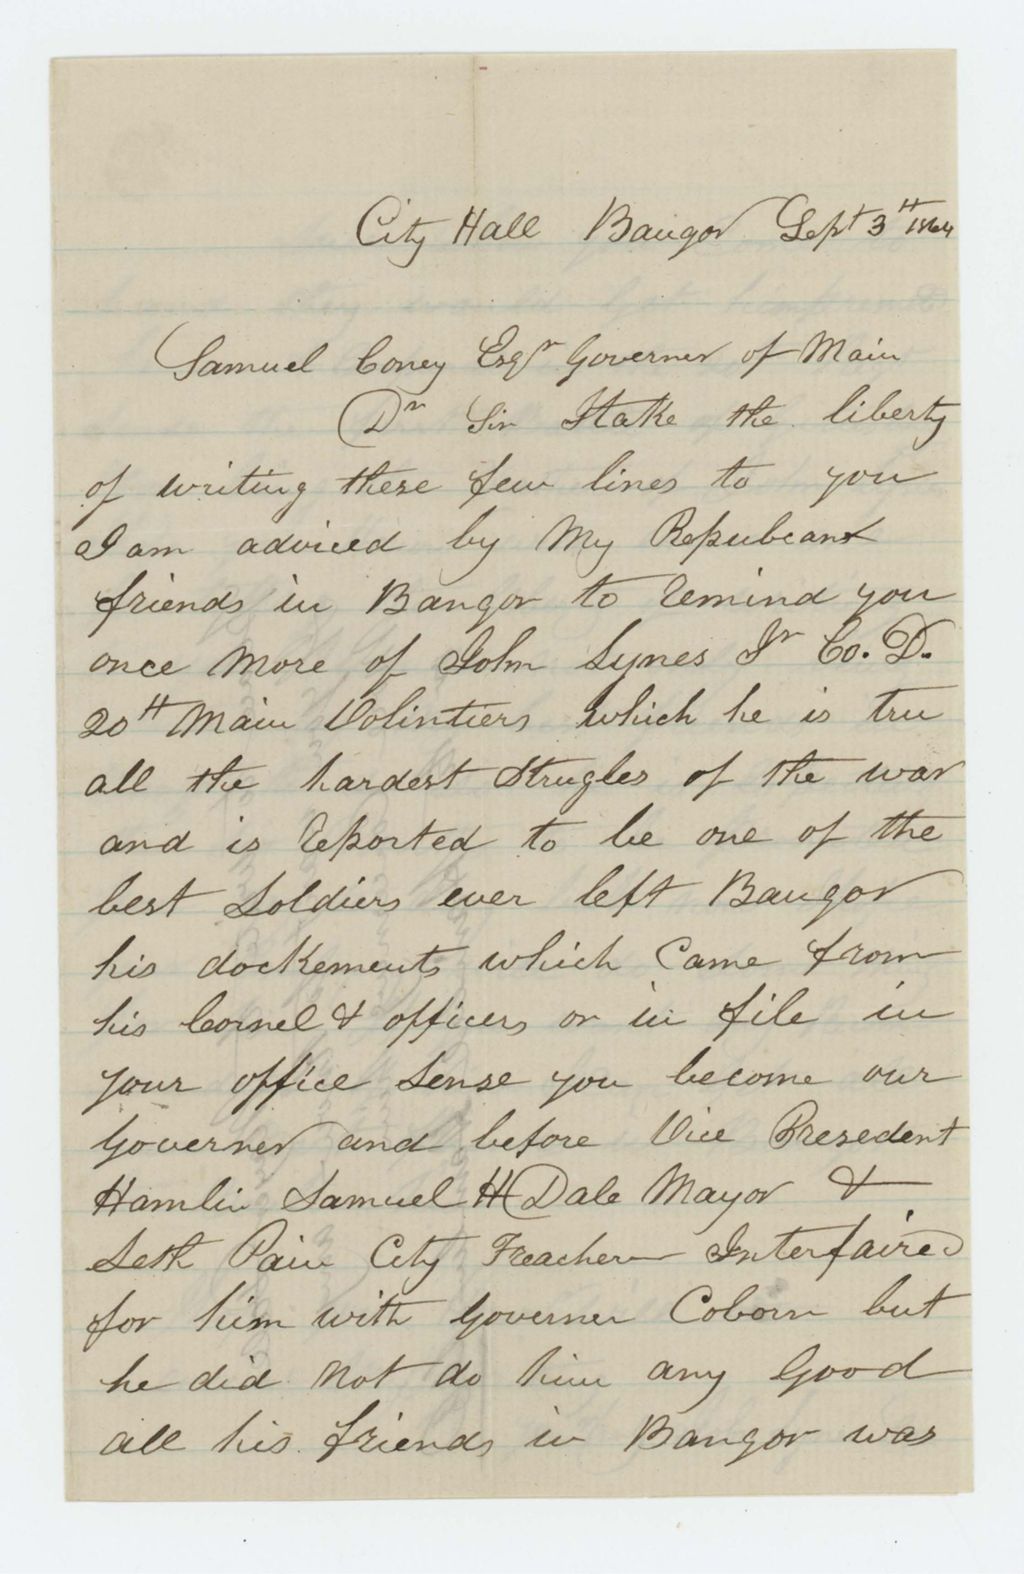 City Hall Bangor Sept 3th 1864
Samuel Coney Esqr Governer of Main
Dr Sir I take the liberty
of writing these few lines to you
I am adviced by My Republcans
friends in Bangor to remind you
once more of John Lynes Jr Co. D.
20th Main Volintiers which he is tru
all the hardest Strugles of the war
and is reported to be one of the
best Soldiers ever left Bangor
his dockements which Came from
his Cornel & officers or in file in
your office Sense you become our
Governer and before Vice Presedent
Hamlin Samuel H Dale Mayor &
Seth Pain City Treacherer Interfaired
for him with Governer Coborn but
he did Not do him any Good
all his friends in Bangor was